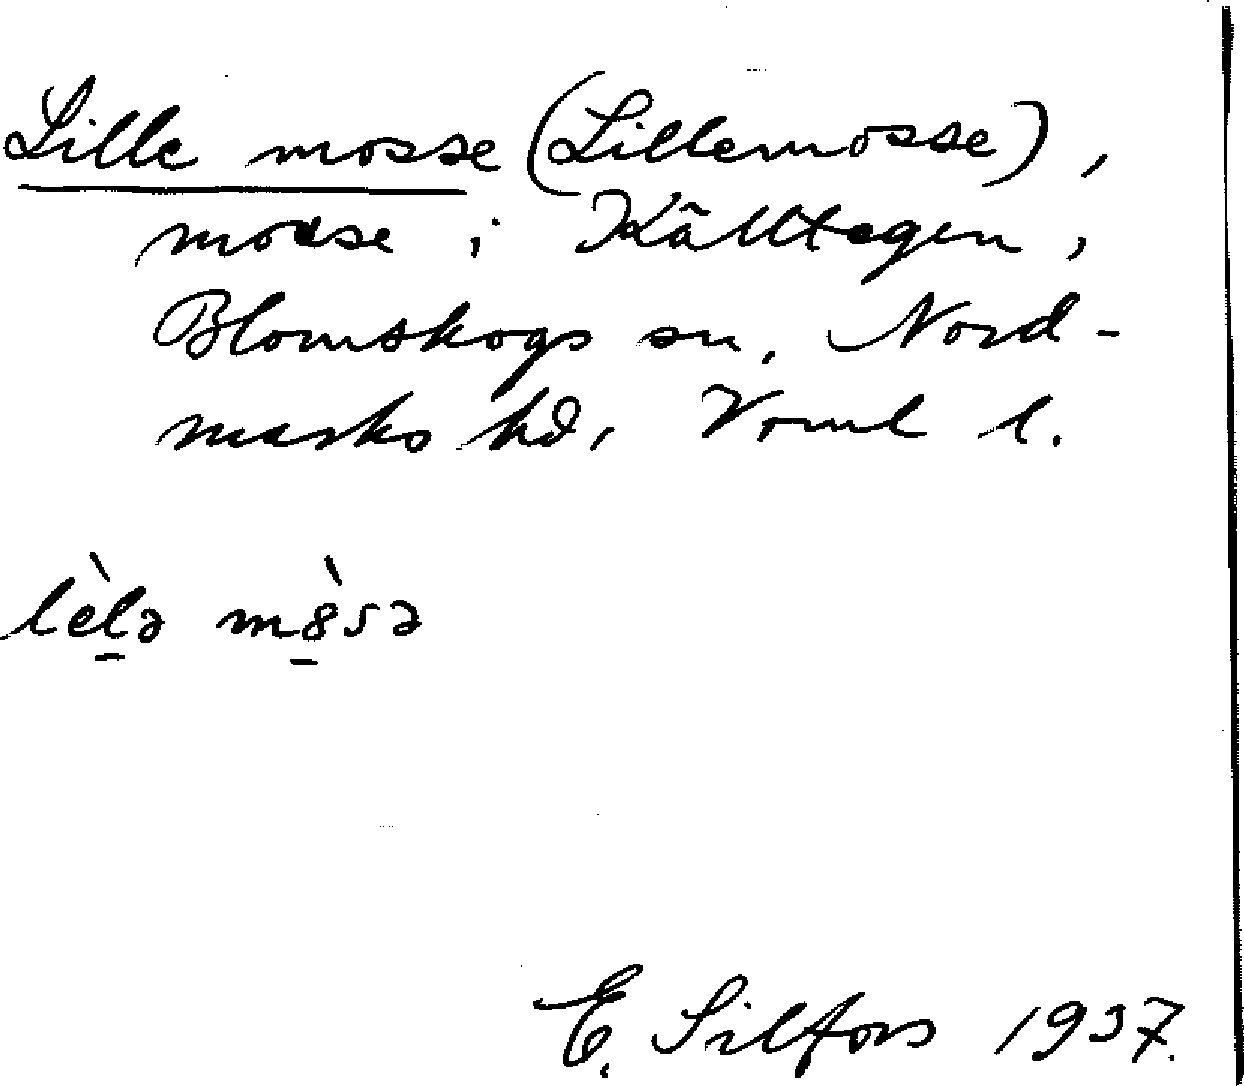 Lille mosse (Lillemosse),
mosse i Källtegen,
Blomskogs sn, Nord-
marks hd, Vrml l.
lèlə m8̀sə
E. Silfors 1937.